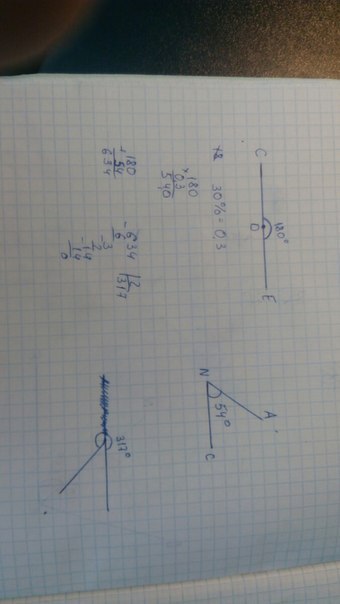 180°
C D E
30% = 0,3
×180
0,3
540
+180
54
634
-634 |2
6 317
-3
2
-14
14
0
A
54°
N C
317°